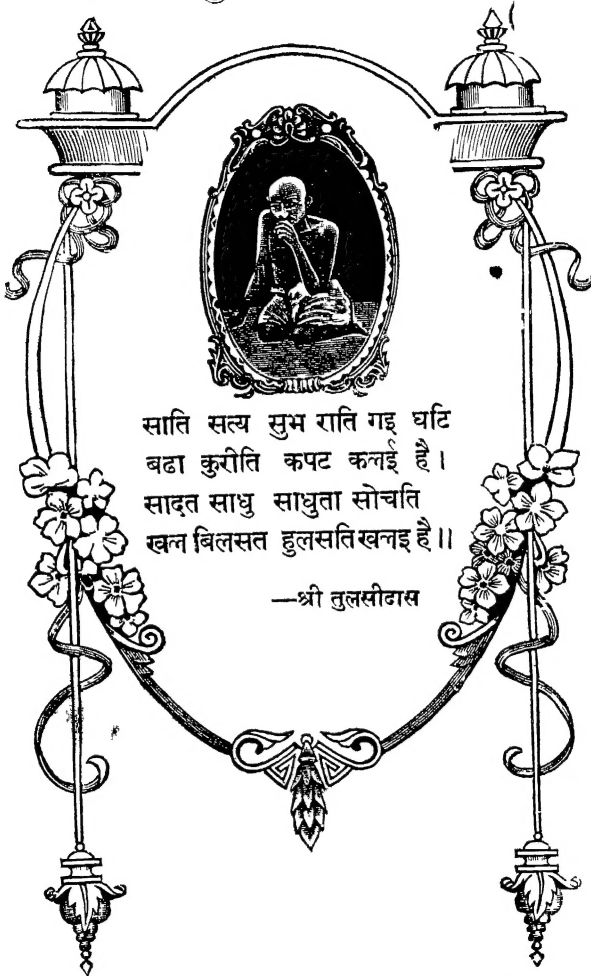 साति सत्य सुभ राति गइ घटि
बढा कुरीति कपट कलई है।
सादत साधु साधुता सोचति
खल बिलसत हुलसति खलइ है॥
—श्री तुलसीदास